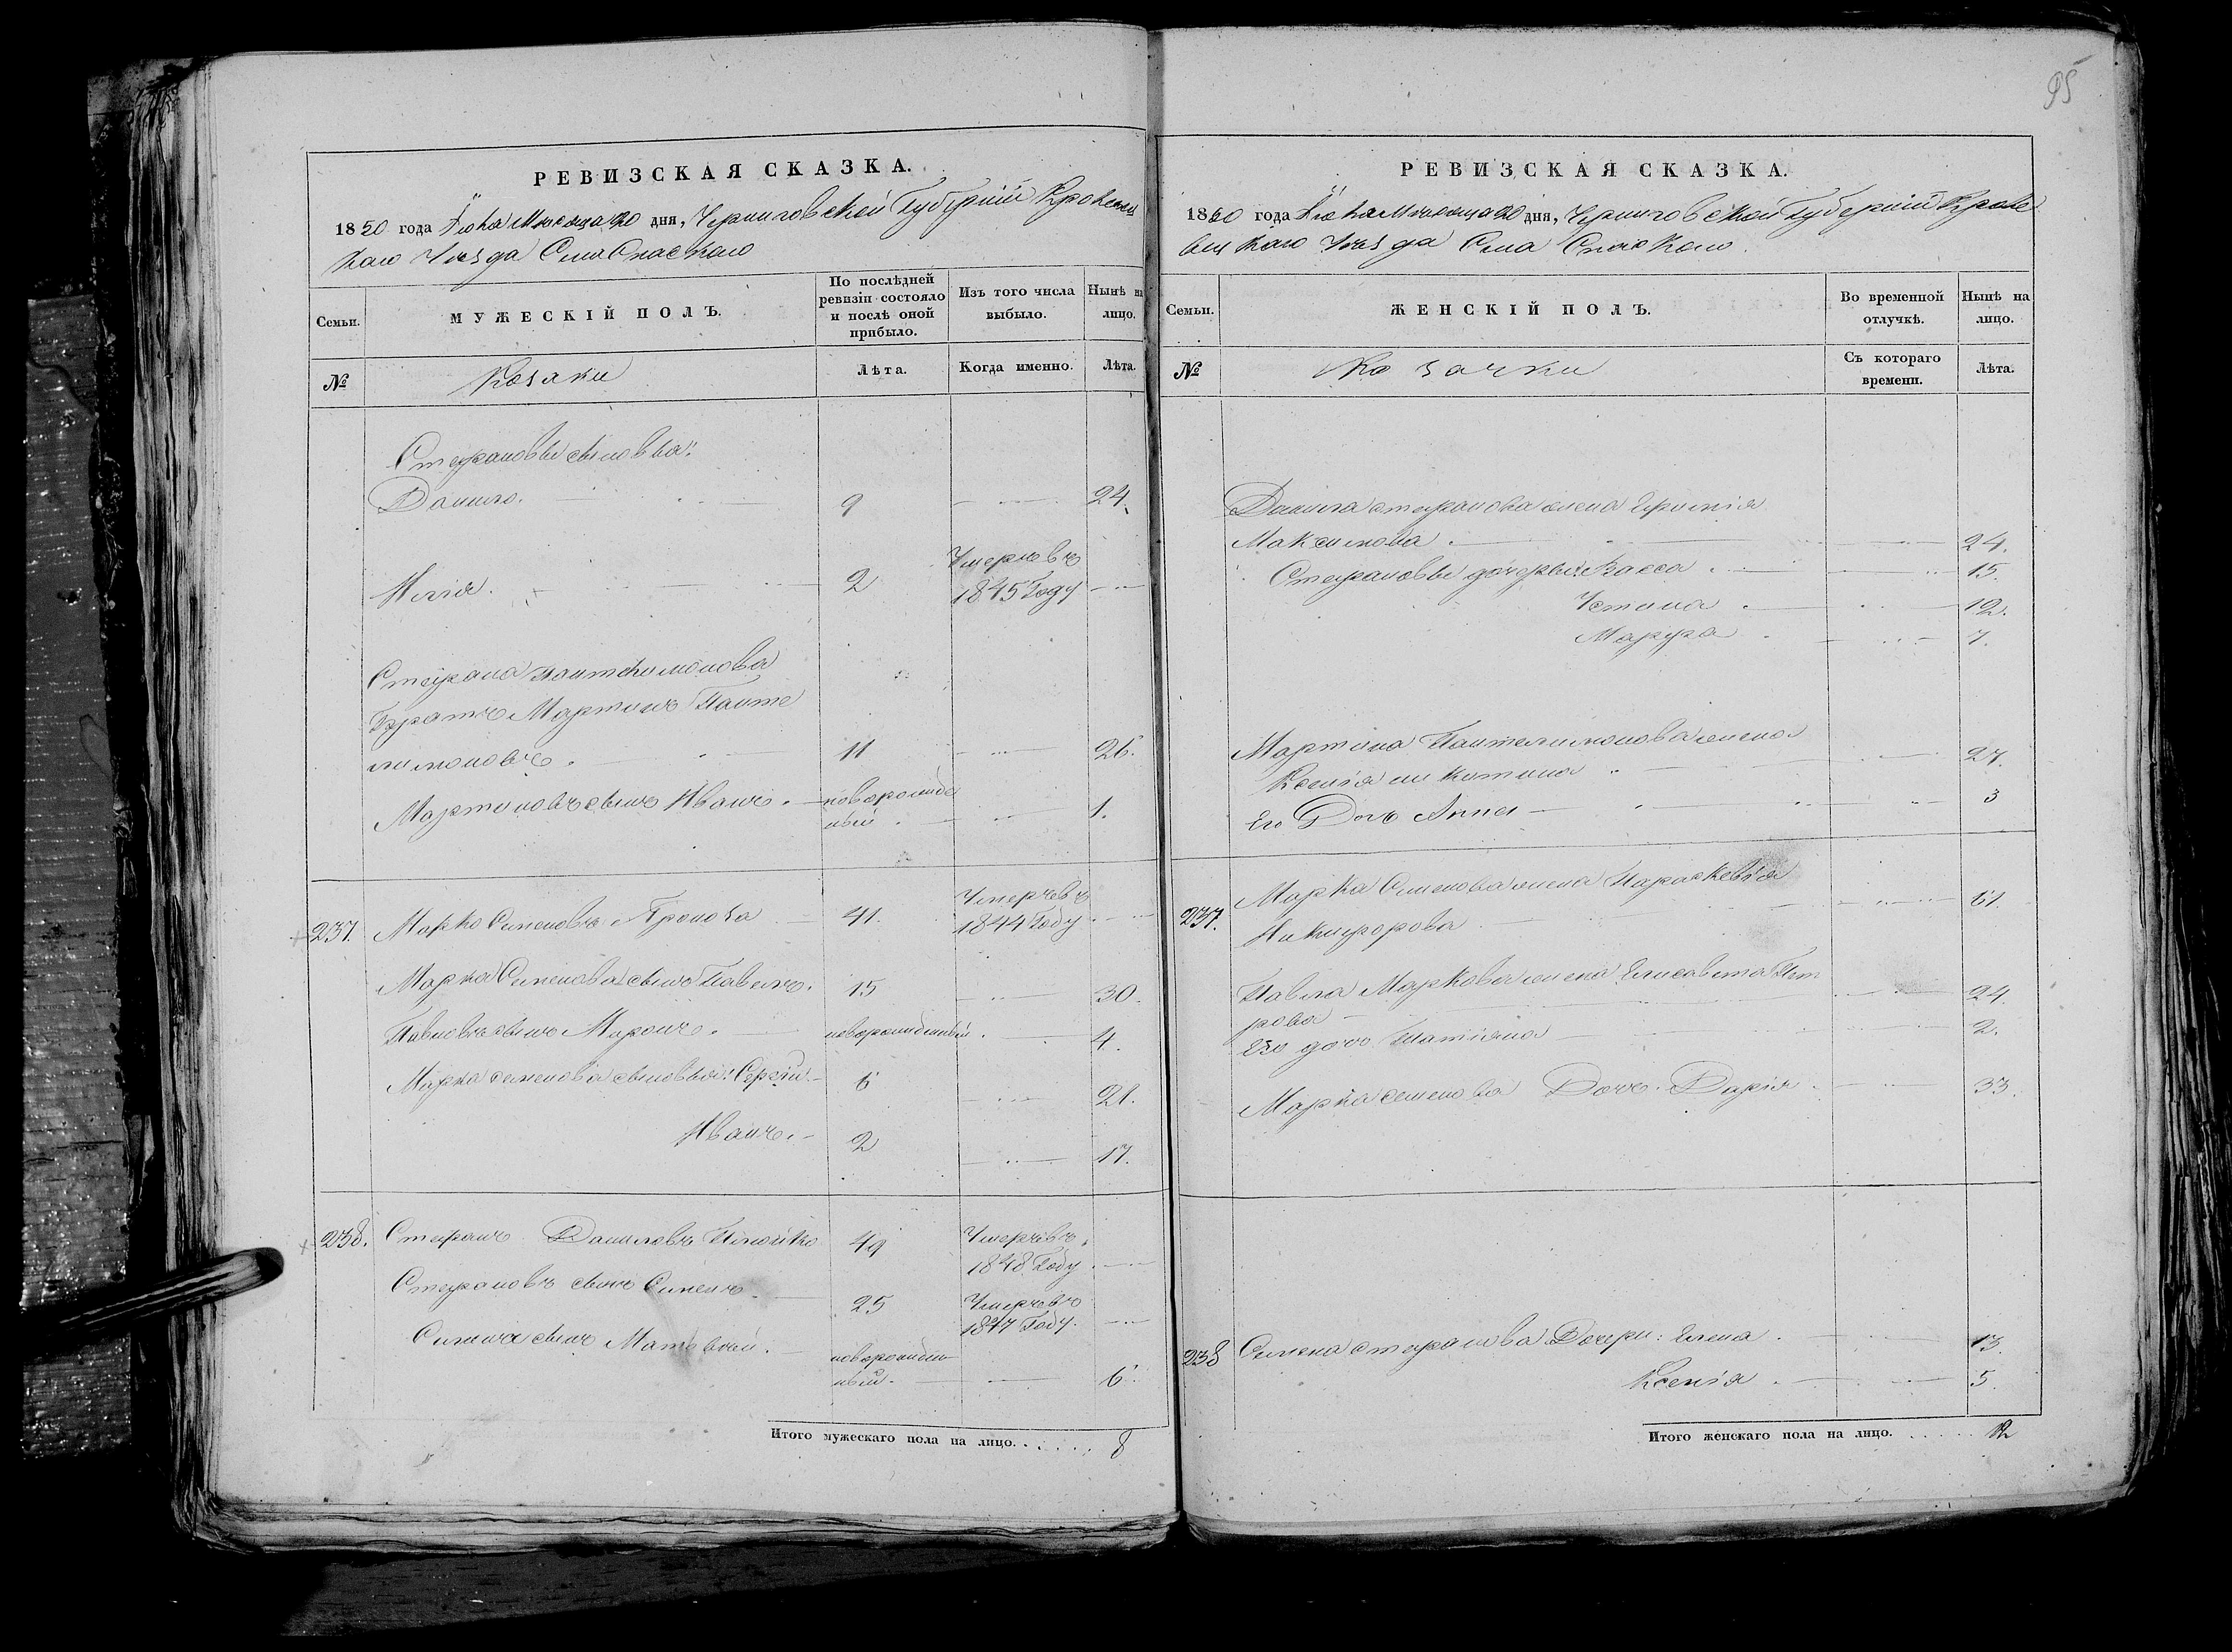 95
РЕВИЗСКАЯ СКАЗКА.
1850 года Июня Месяца 20 дня, Черниговской Губернии Кролевец
каго Уезда Села Спаскаго
Семьи.
МУЖЕСКІЙ ПОЛЪ.
По послѣдней ревизіи состояло и послѣ оной прибыло.
Изъ того числа выбыло.
Нынѣ на лицо.
№
Козаки
Лѣта.
Когда именно.
Лѣта.
Стефановы сыновья:
Данило. 9 24.
Умеръ въ
Илія. 2 1845 Году
Стефана Пантелимонова
Братъ Мартинъ Панте
лимоновъ. 11 26.
Мартиновъ сынъ Иванъ. новорожде
ный 1.
Умеръ въ
237. Марко Семеновъ 41. 1844 Году
Марка Семенова сынъ Павелъ. 15 30.
Павловъ сынъ Миронъ. новорожденный 4.
Марка семенова сыновья: Сергій 6 21.
Иванъ. 2 17.
238. Стефанъ Даниловъ 49 Умеръ въ
1848 Году
Стефановъ сынъ Сименъ 25 Умеръ въ
1847 Году.
Сименъ сынъ Матвей. новорожден
ный. 6.
Итого мужескаго пола на лицо. 8
РЕВИЗСКАЯ СКАЗКА.
1850 года Июня Месяца 20 дня, Черниговской Губернии Кроле
вец каго Уезда Села Спаскаго.
Семьи.
ЖЕНСКІЙ ПОЛЪ.
Во временной отлучкѣ.
Нынѣ на лицо.
№
Козачки
Съ котораго времени.
Лѣта.
Данила стефанова жена
Максимова 24.
Стефановы дочери: Васса 15.
Устина 12.
Марфа 7.
Мартина Пантелимонова жена
Ксенія 27.
Его Дочь Анна 3
237. Марка Семенова жена Параскевія
Никифорова 61.
Павла Маркова жена Елисавета Пет
рова 24.
Его дочь Татіана 2.
Марка семенова Дочь Дарія 33.
238 Симена стефанова Дочери: Елена 13.
Ксенія 5.
Итого женскаго пола на лицо. 12